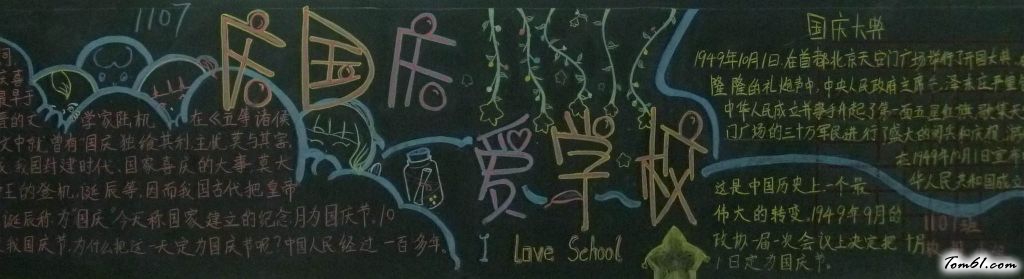 1107
庆国庆
爱学校
I Love School
词
学家陆机 在《五等诸侯
文中就曾有国庆独飨其利,主忧莫与其害,
我国封建时代、国家喜庆的大事,莫大
王的登机,诞辰等,因而我国古代把皇帝
诞辰称为国庆 今天称国家建立的纪念月为国庆节,10
我国庆节,为什么把这一天定为国庆节呢?中国人民经过一百多年
国庆大典
1949年10月1日,在首都北京天安门广场举行了开国大典,
隆隆的礼炮声中,中央人民政府主席 泽东庄严
中华人民 成立并亲手升起了第一面五星红旗.
门广场的三十万军民进行了盛大的阅兵和庆祝
在1949年10月1日宣布
华人民共和国成立
这是中国历史上一个最
伟大的转变,1949年9月的
政协一届一次会议上决定把十月
1日定为国庆节。
1107班
Tom61.com